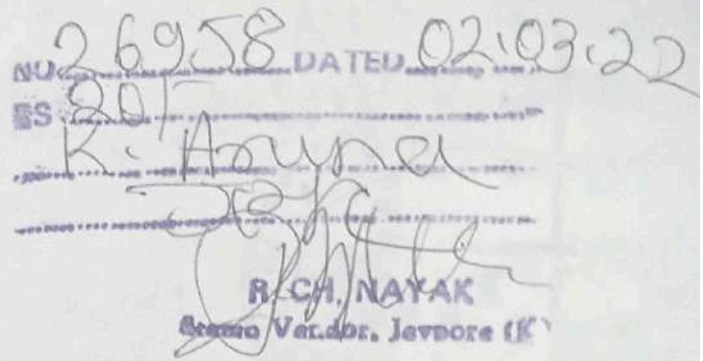 NO 26958 DATED 02.03.22
RS 20/-
K. Aruna
R. CH. NAYAK
Stamp Vendor, Jeypore (K)